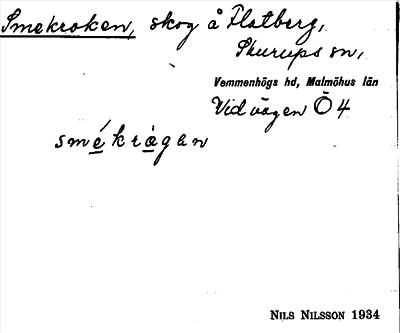 Smekroken, skog å Flatberg,
Skurups sn,
Vemmenhögs hd, Malmöhus län
Vid vägen Ö 4
smékrågan
NILS NILSSON 1934